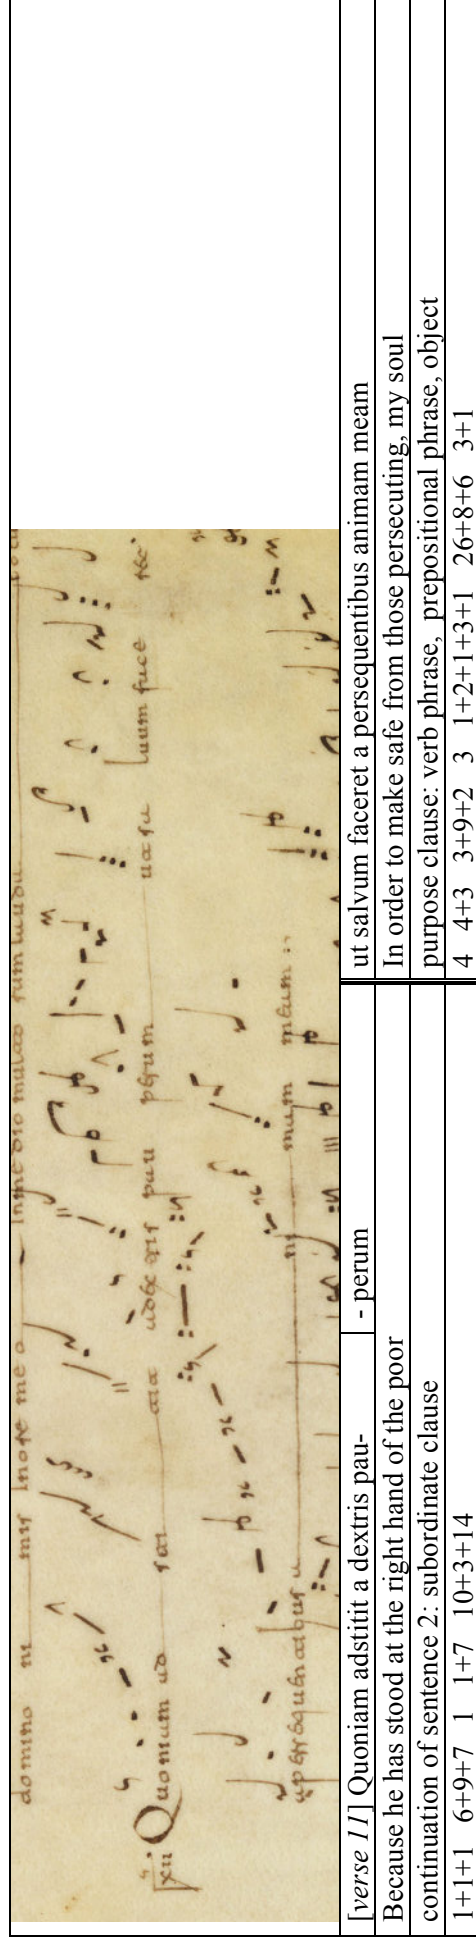 domino ni mis Inore meo Inmedio
XII Quoniam ad dextris pau perum luum face
apersequentibus a ni mam meam
[verse 11] Quoniam adstitit a dextris pau- - perum ut salvum faceret a persequentibus animam meam
Because he has stood at the right hand of the poor In order to make safe from those persecuting, my soul
continuation of sentence 2: subordinate clause purpose clause: verb phrase, prepositional phrase, object
1+1+1 6+9+7 1 1+7 10+3+14 4 4+3 3+9+2 3 1+2+1+3+1 26+8+6 3+1